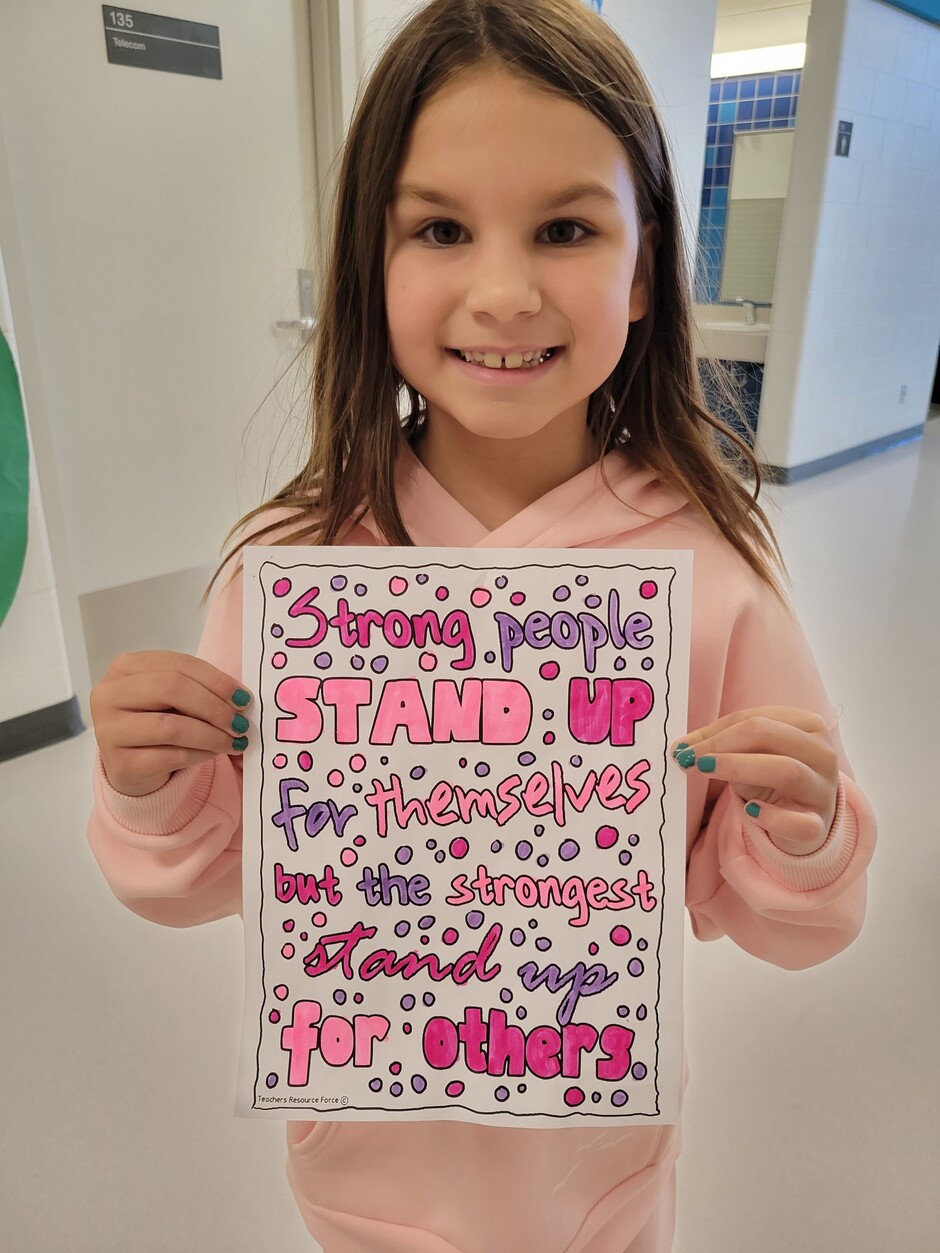 135
Telecom
Strong people
STAND UP
for themselves
but the strongest
stand up
for others.
Teachers Resource Force ©